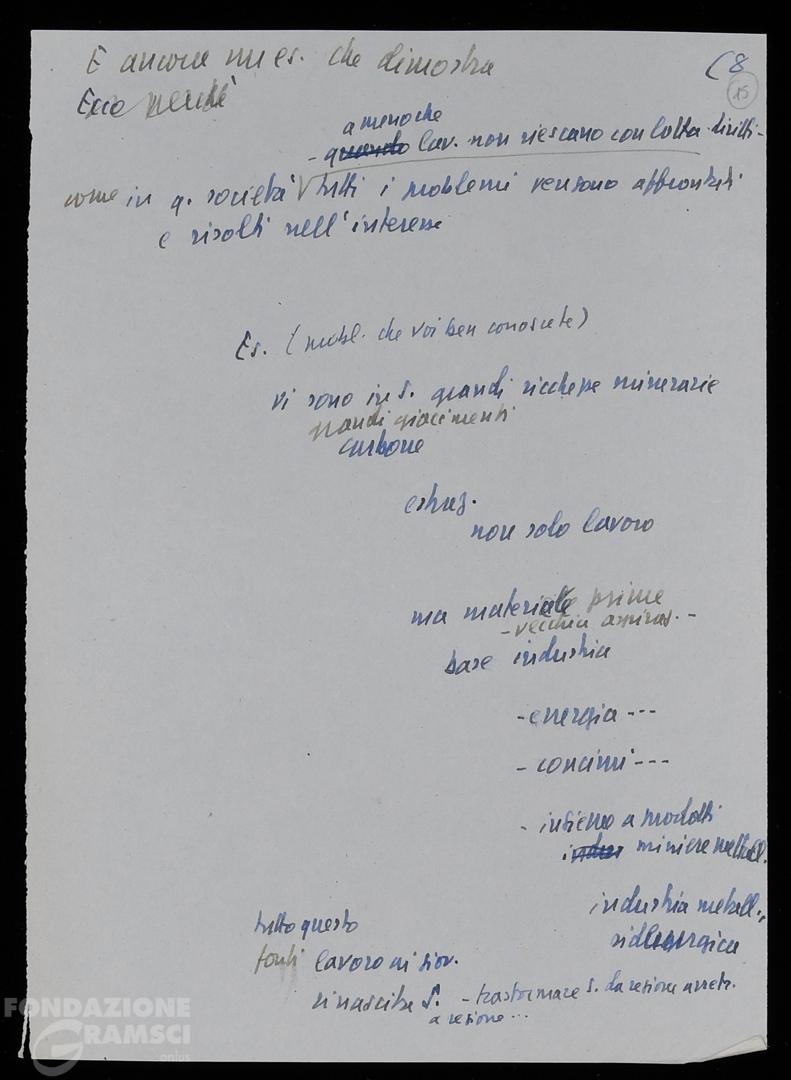 E ancora un es. che dimostra
(8
15
Ecco perché
a meno che
- quando lav. non riescano con lotta diritti -
come in q. società tutti i problemi vengono affrontati
e risolti nell'interesse
Es. (probl. che voi ben conoscete)
vi sono in S. grandi ricchezze minerarie
grandi giacimenti
carbone
estraz.
non solo lavoro
ma materie prime
- vecchia aspiraz. -
base industria
- energia ---
- concimi ---
- insieme a prodotti
indus miniere metall.
industria metall.,
siderurgica
tutto questo
fonti lavoro ai giov.
rinascita S. - trasformare S. da regione arretr.
a regione ...
FONDAZIONE
GRAMSCI
onlus